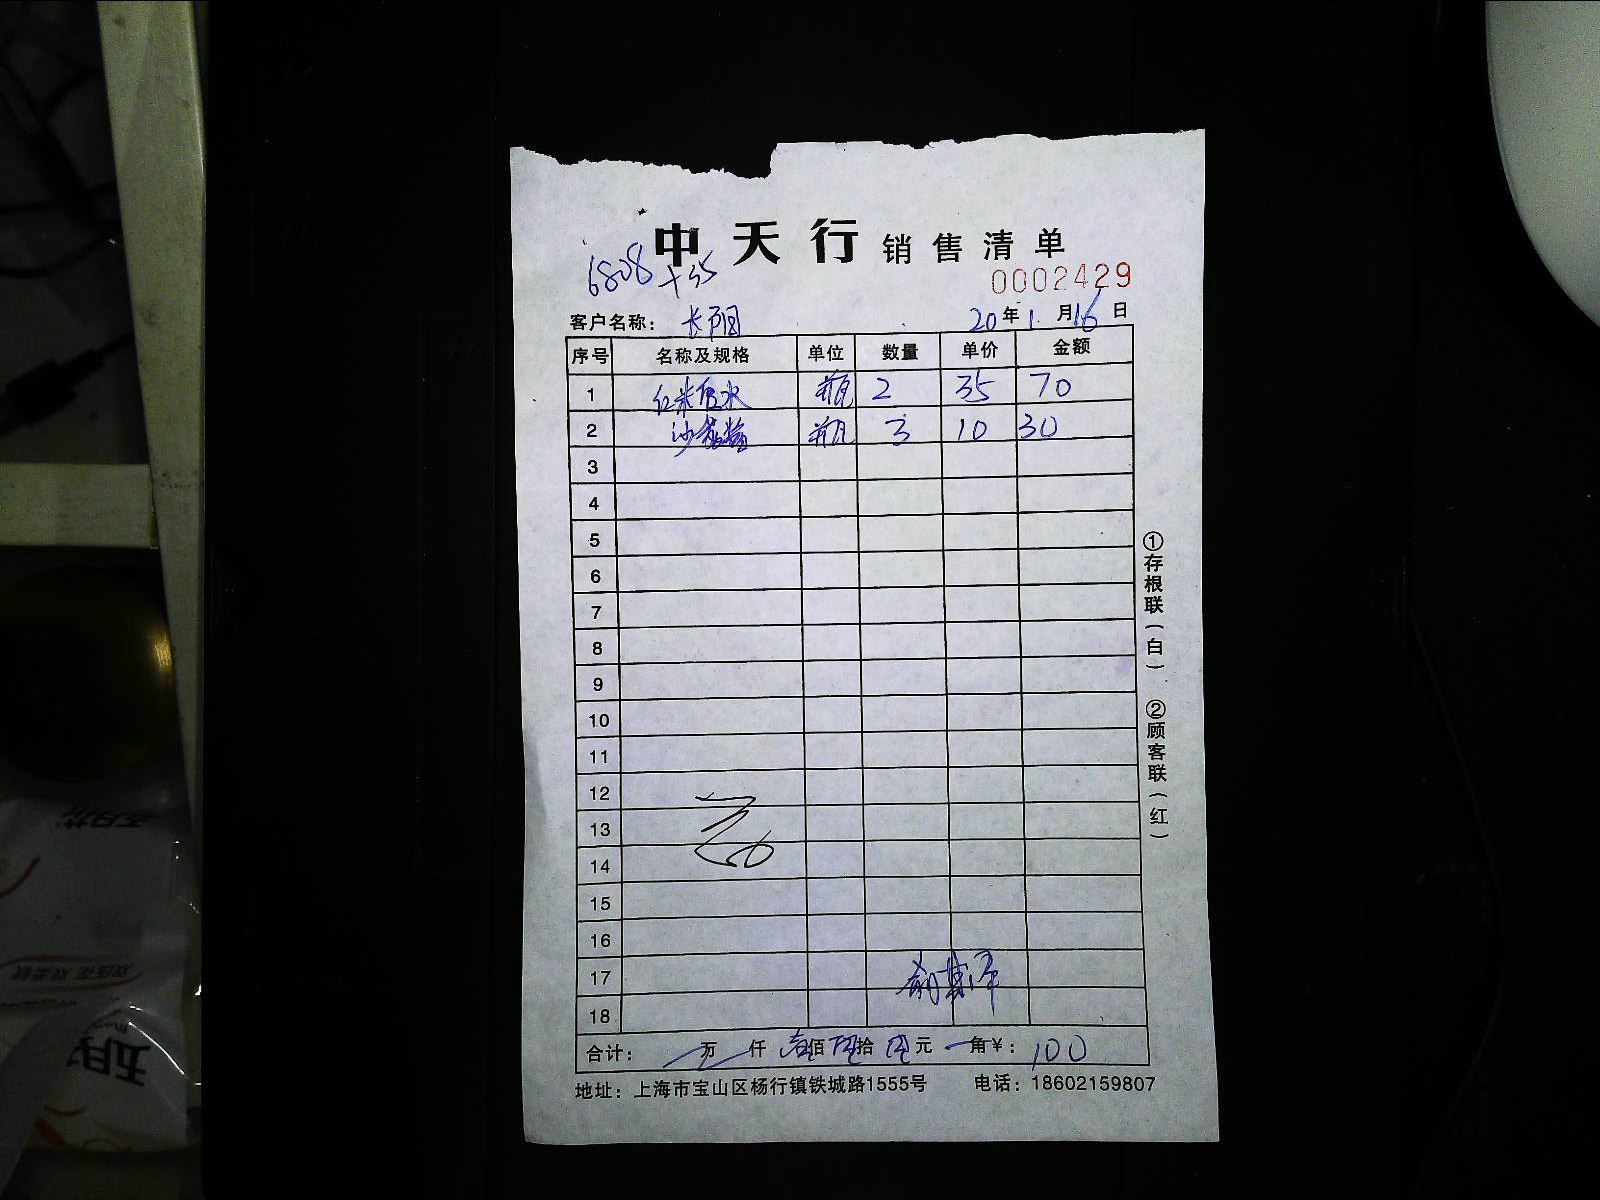 中天行 销售清单
6808
+35
0002429
客户名称： 长阳 20年1月16日
序号 名称及规格 单位 数量 单价 金额
1 红米 瓶 2 35 70
2 瓶 3 10 30
3
4
5
6
7
8
9
10
11
12
13
14
15
16
17
18
合计： 万 仟 壹佰 拾 元 角￥：100
地址：上海市宝山区杨行镇铁城路1555号 电话：18602159807
①存根联（白） ②顾客联（红）
五月花
五月花